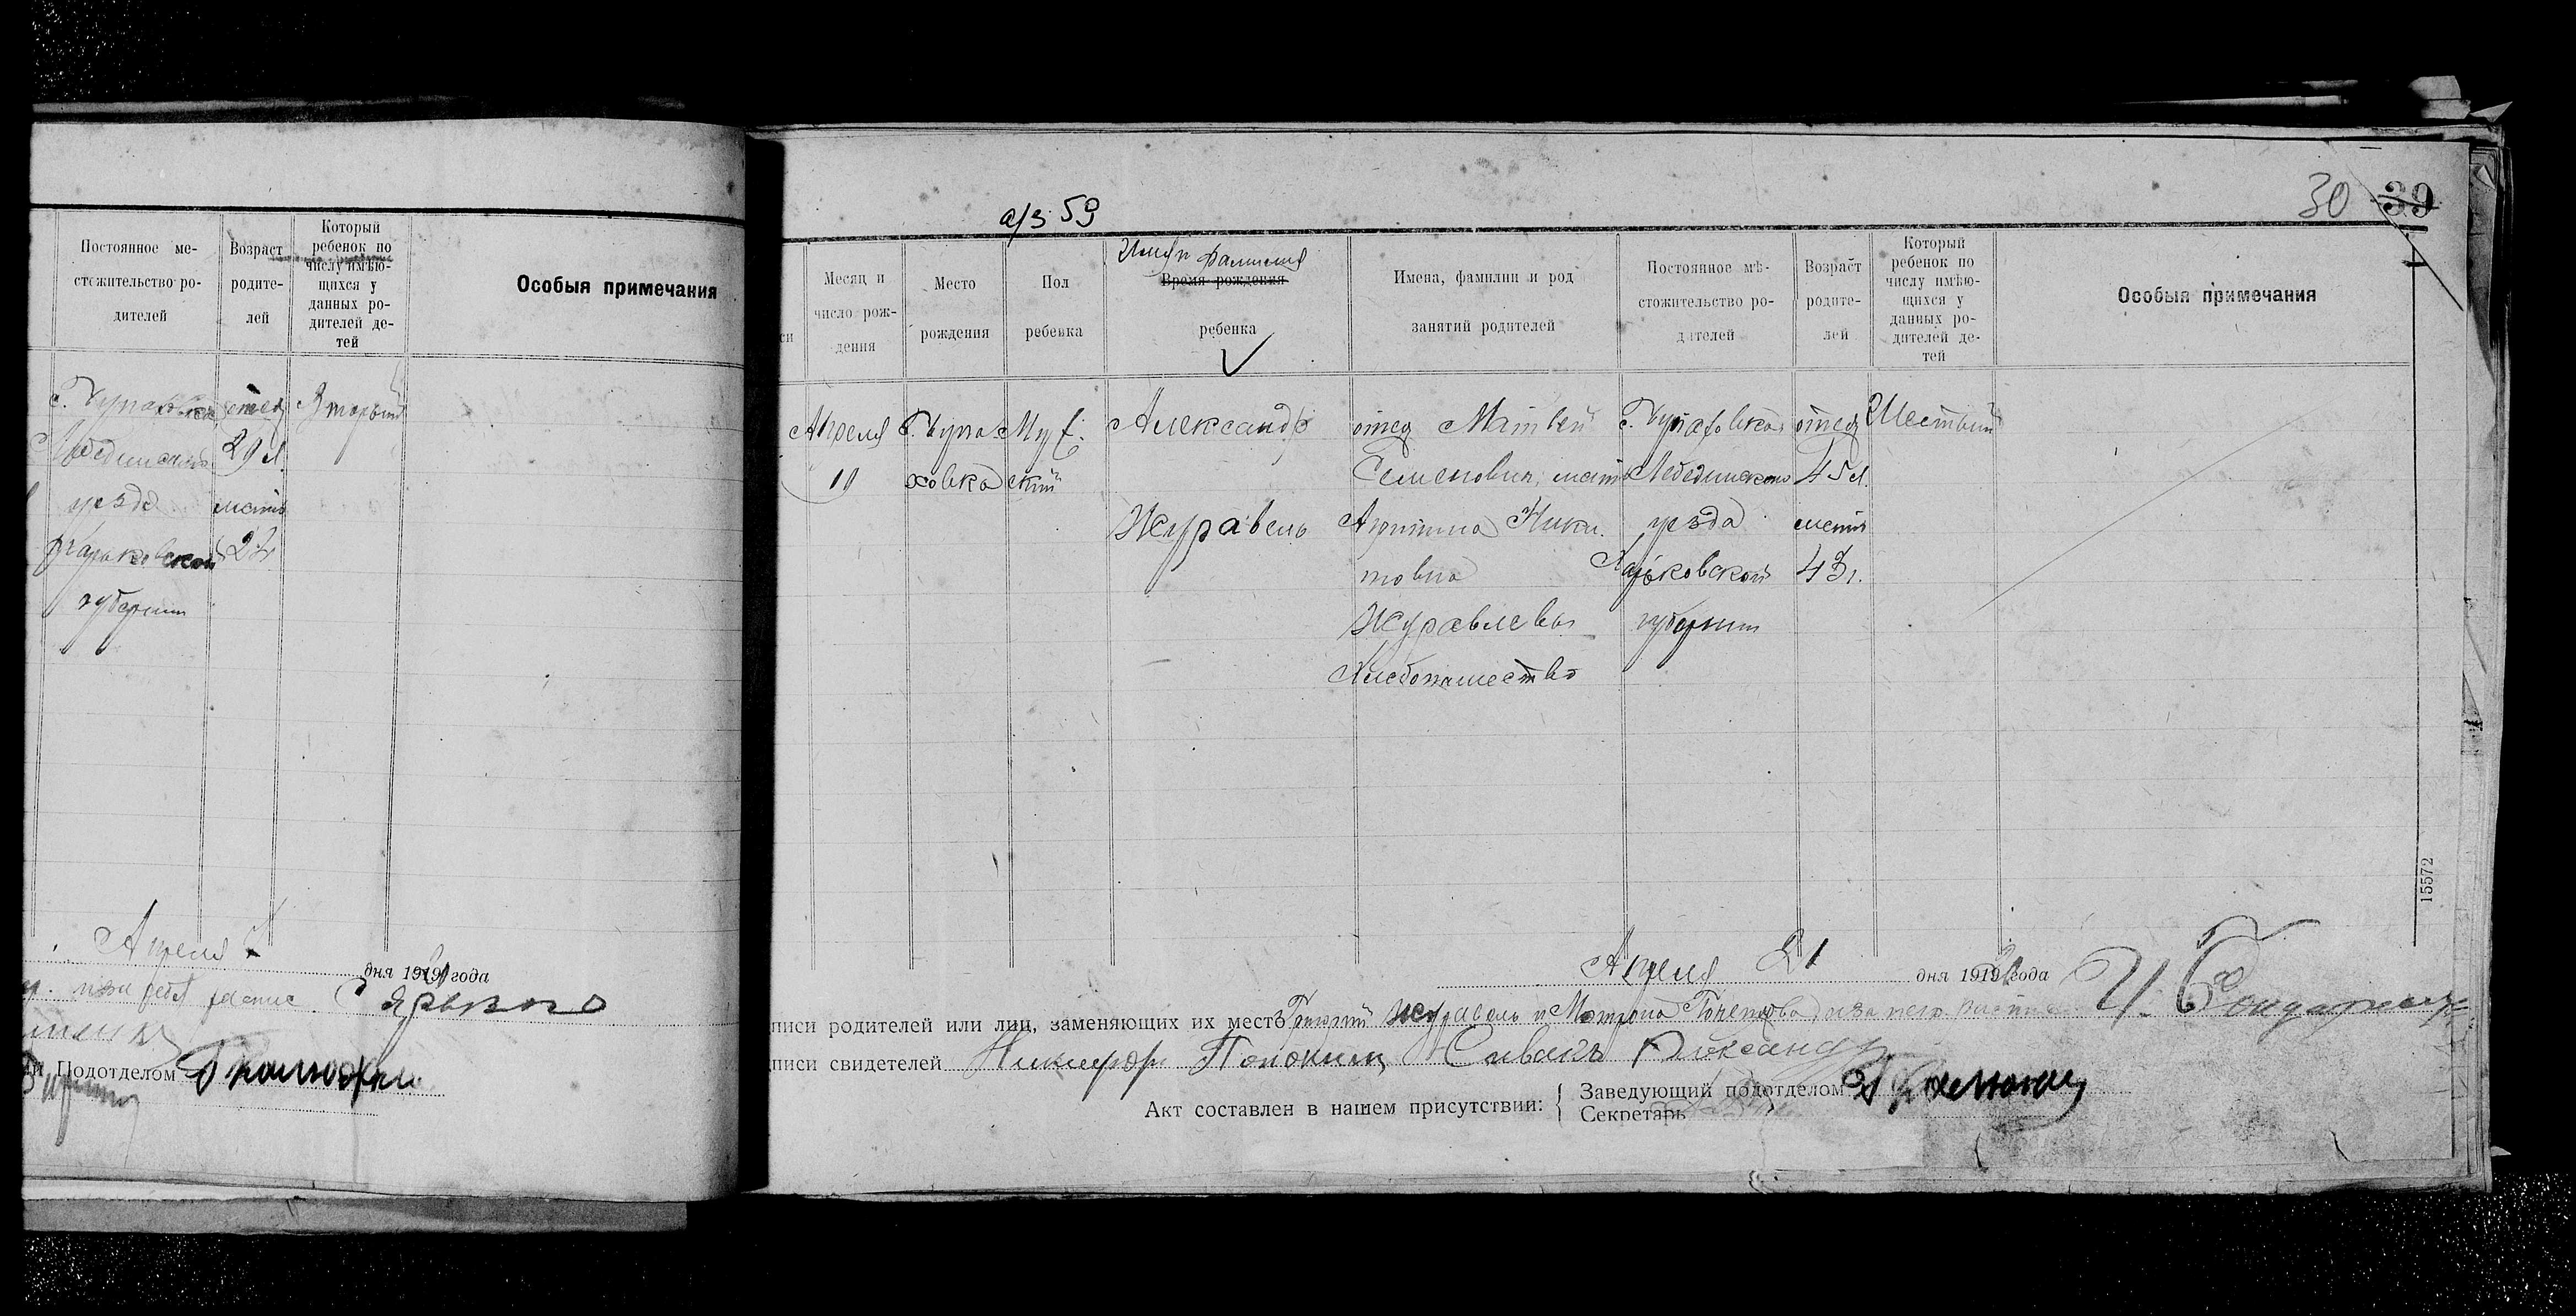 Постоянное ме-
стожительство ро-
дителей
Возраст
родите-
лей
Который
ребенок по
числу имѣю-
щихся у
данных ро-
дителей де-
тей
Особыя примечания
отец
29 л.
мать
Второй
уезда
Харьковской
губернии
Апреля
дня 19 года
Подотделом
а/з 59
30
39
Месяц и
число рож-
дения
Место
рождения
Пол
ребенка
Имя и фамилия
Время рождения
ребенка
Имена, фамилии и род
занятий родителей
Постоянное мѣ-
стожительство ро-
дителей
Возраст
родите-
лей
Который
ребенок по
числу имѣю-
щихся у
данных ро-
дителей де-
тей
Особыя примечания
Апреля
19
с. Чупа
ховка
Муж
ский
Александр
Журавель
отец Матвей
Семенович, мать
Ники
товна
Журавлевы
Хлебопашество
с. Чупаховка
Лебединского
уезда
Харьковской
губернии
отец
45 л.
мать
43 г.
Шестый
15572
Апреля 21 дня 19 года
писи родителей или лиц, заменяющих их место Григорий Журавель и Матрона
писи свидетелей Никифор Сивакъ Александр
Акт составлен в нашем присутствии:
Заведующий подотделом
Секретарь